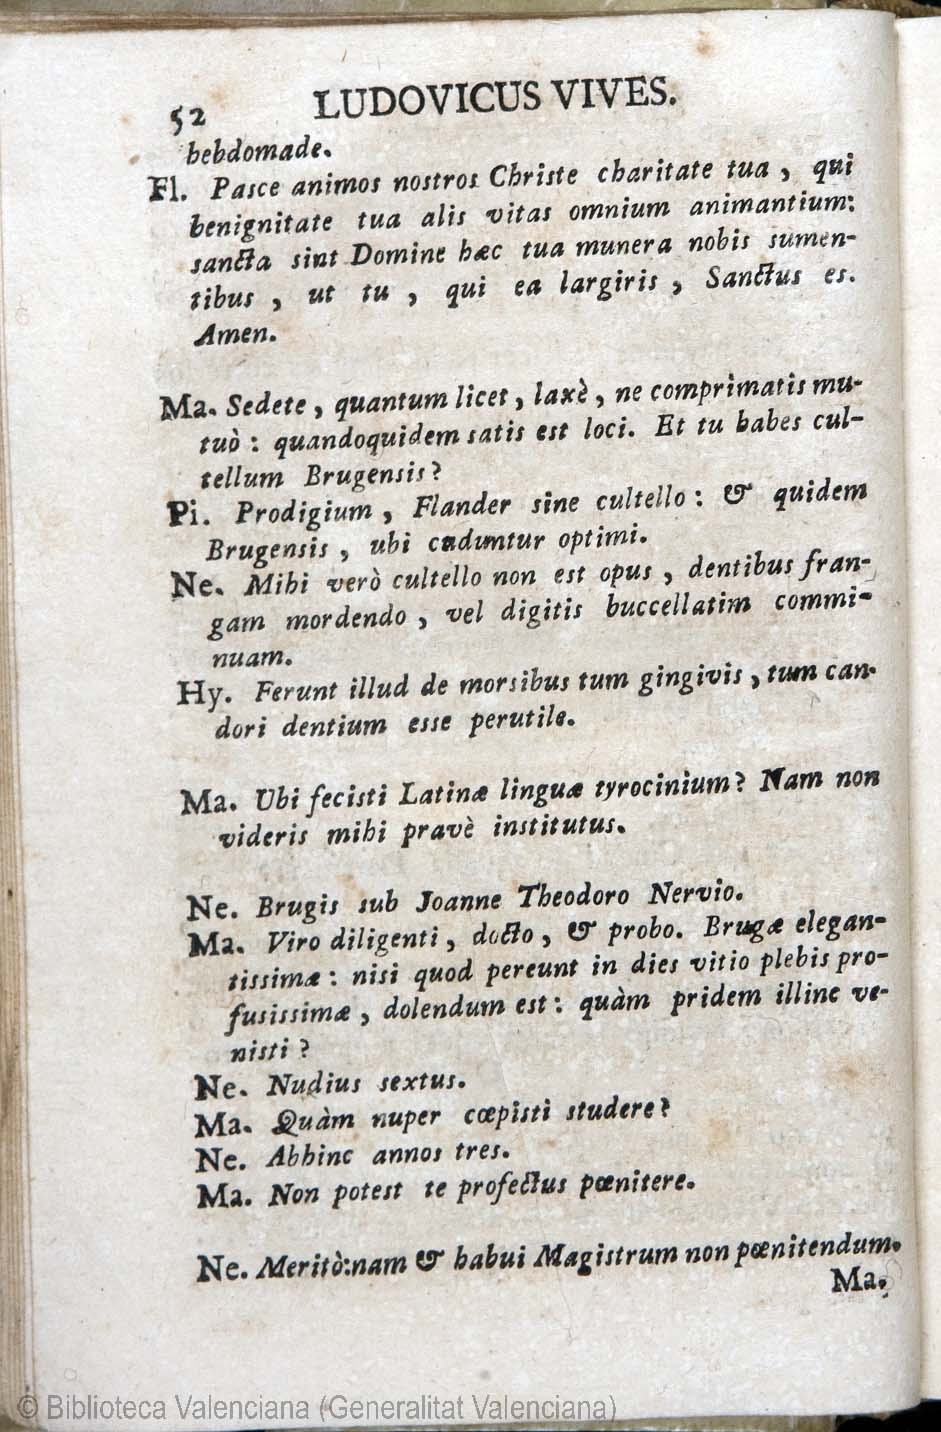 52 LUDOVICUS VIVES.
hebdomade.
Fl. Pasce animos nostros Christe charitate tua , qui
benignitate tua alis vitas omnium animantium:
sancta sint Domine hæc tua munera nobis sumen-
tibus , ut tu , qui ea largiris , Sanctus es.
Amen.
Ma. Sedete , quantum licet , laxè , ne comprimatis mu-
tuò : quandoquidem satis est loci. Et tu habes cul-
tellum Brugensis?
Pi. Prodigium , Flander sine cultello : & quidem
Brugensis , ubi cuduntur optimi.
Ne. Mihi verò cultello non est opus , dentibus fran-
gam mordendo , vel digitis buccellatim commi-
nuam.
Hy. Ferunt illud de morsibus tum gingivis , tum can-
dori dentium esse perutile.
Ma. Ubi fecisti Latinæ linguæ tyrocinium? Nam non
videris mihi pravè institutus.
Ne. Brugis sub Joanne Theodoro Nervio.
Ma. Viro diligenti , docto , & probo. Brugæ elegan-
tissimæ : nisi quod pereunt in dies vitio plebis pro-
fusissimæ , dolendum est : quàm pridem illinc ve-
nisti ?
Ne. Nudius sextus.
Ma. Quàm nuper cœpisti studere?
Ne. Abhinc annos tres.
Ma. Non potest te profectus pœnitere.
Ne. Meritò:nam & habui Magistrum non pœnitendum.
Ma.
© Biblioteca Valenciana (Generalitat Valenciana)